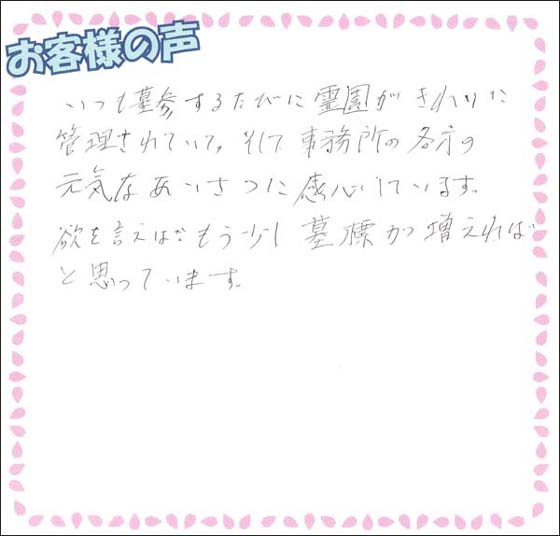 お客様の声
いつも墓参するたびに霊園がきれいに
管理されていて、そして事務所の各方の
元気なあいさつに感心しています。
欲を言えばもう少し墓標が増えれば
と思っています。